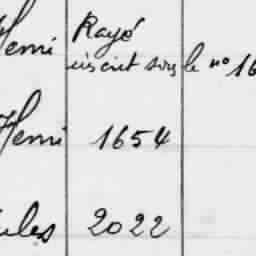 Henri Rayé
inscrit sous le n° 16
Henri 1654
ules 2022